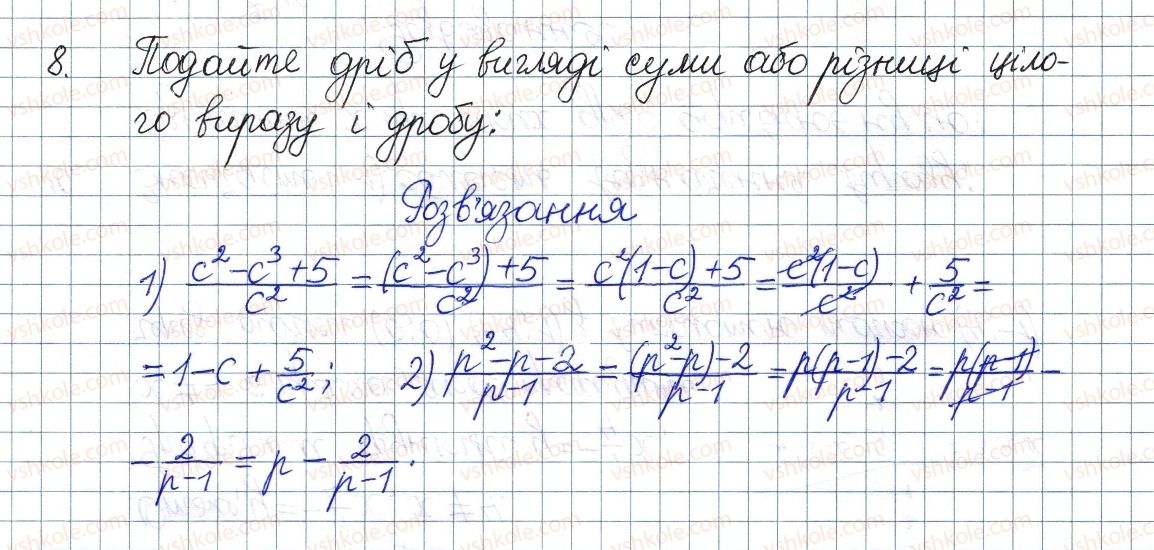 8. Подайте дріб у вигляді суми або різниці ціло-
го виразу і дробу:
Розв'язання
1) (c² - c³ + 5)/c² = ((c² - c³) + 5)/c² = (c²(1 - c) + 5)/c² = c²(1 - c)/c² + 5/c² =
= 1 - c + 5/c²; 2) (p² - p - 2)/(p - 1) = ((p² - p) - 2)/(p - 1) = (p(p - 1) - 2)/(p - 1) = p(p - 1)/(p - 1) -
- 2/(p - 1) = p - 2/(p - 1).